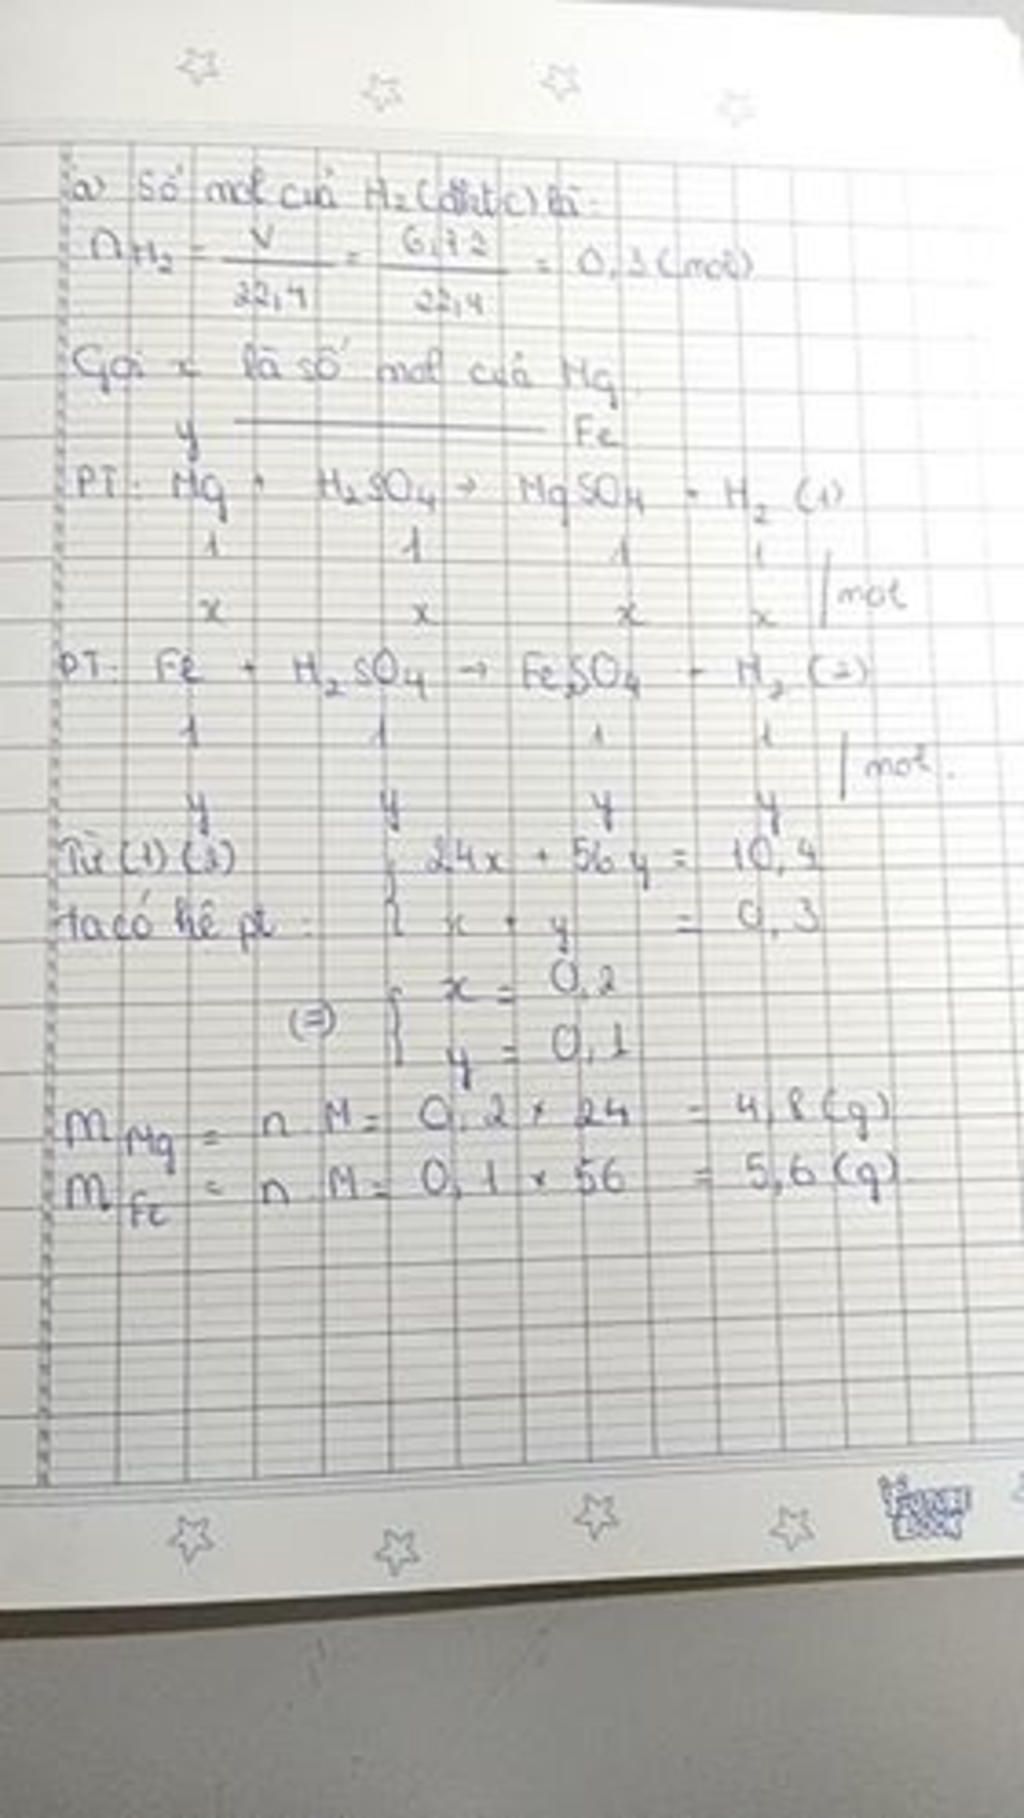 a) Số mol của H₂ (đktc) là:
nH₂ = V/22,4 = 6,72/22,4 = 0,3 (mol)
Gọi x là số mol của Mg
y ———— Fe
PT: Mg + H₂SO₄ → MgSO₄ + H₂ (1)
1 1 1 1
x x x x /mol
PT: Fe + H₂SO₄ → FeSO₄ + H₂ (2)
1 1 1 1
y y y y /mol.
Từ (1) (2) { 24x + 56y = 10,4
ta có hệ pt: { x + y = 0,3
(=) { x = 0,2
{ y = 0,1
mMg = n M = 0,2 × 24 = 4,8 (g)
mFe = n M = 0,1 × 56 = 5,6 (g)
FUTURE BOOK